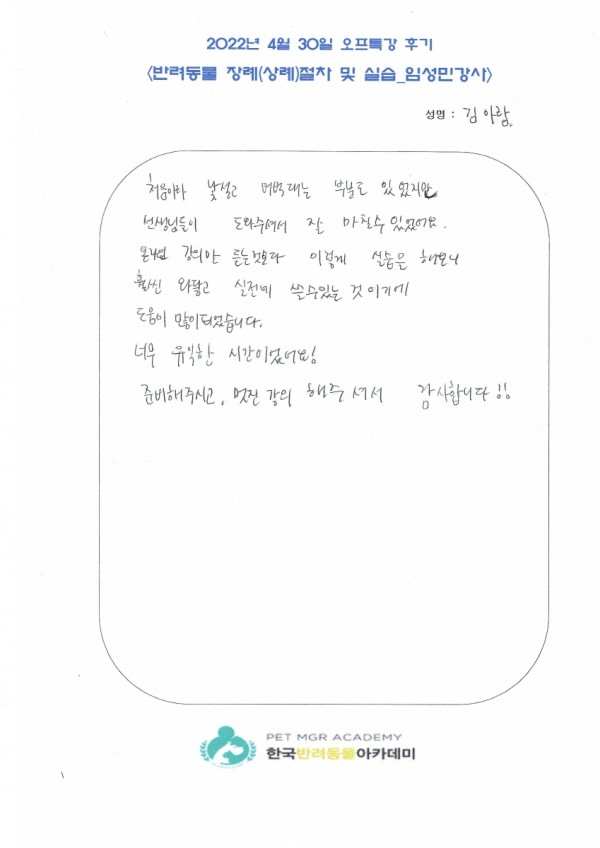 2022년 4월 30일 오프특강 후기
<반려동물 장례(상례)절차 및 실습_임성민강사>
성명 : 김아람
처음이라 낯설고 버벅대는 부분도 있었지만
선생님들이 도와주셔서 잘 마칠수있었어요.
온라인 강의만 듣는것보다 이렇게 실습을 해보니
훨씬 와닿고 실전에 쓸수있는 것이기에
도움이 많이되었습니다.
너무 유익한 시간이었어요!
준비해주시고, 멋진 강의 해주셔서 감사합니다!!
PET MGR ACADEMY
한국반려동물아카데미